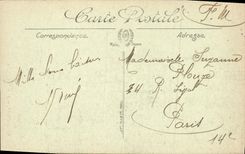 Carte Postale
F. M.
Correspondance. Adresse.
Mille bons baisers
Mademoiselle Suzanne
34 R.
Paris
14e